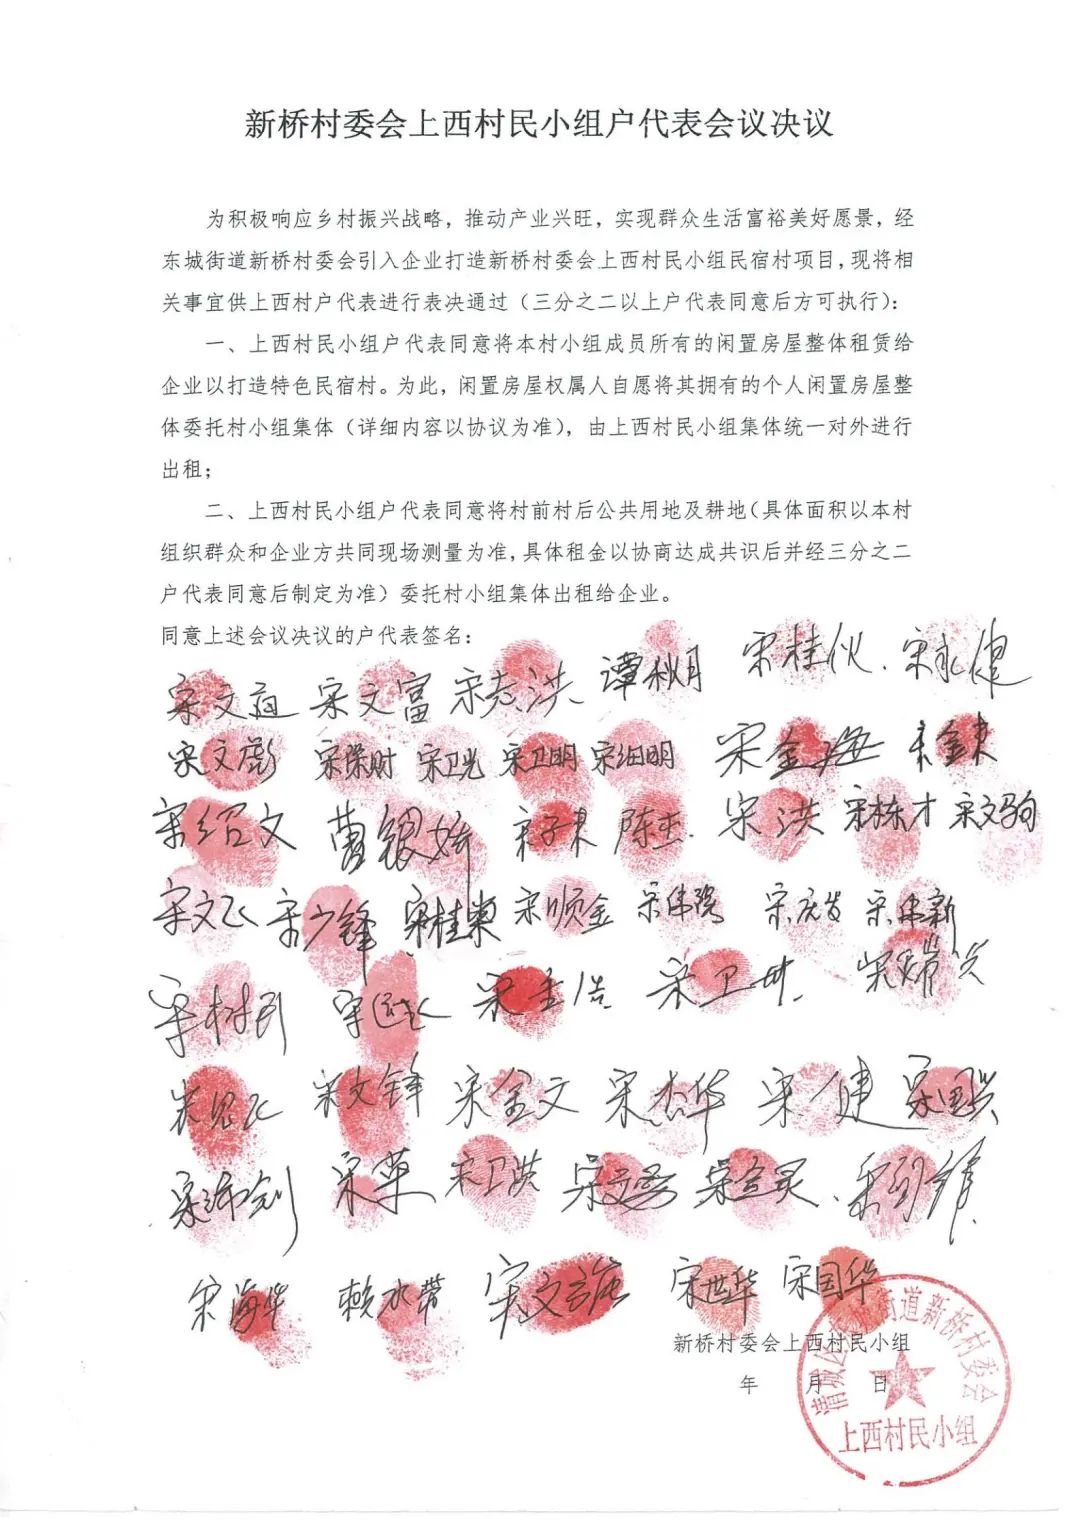 新桥村委会上西村民小组户代表会议决议
为积极响应乡村振兴战略，推动产业兴旺，实现群众生活富裕美好愿景，经
东城街道新桥村委会引入企业打造新桥村委会上西村民小组民宿村项目，现将相
关事宜供上西村户代表进行表决通过（三分之二以上户代表同意后方可执行）：
一、上西村民小组户代表同意将本村小组成员所有的闲置房屋整体租赁给
企业以打造特色民宿村。为此，闲置房屋权属人自愿将其拥有的个人闲置房屋整
体委托村小组集体（详细内容以协议为准），由上西村民小组集体统一对外进行
出租；
二、上西村民小组户代表同意将村前村后公共用地及耕地（具体面积以本村
组织群众和企业方共同现场测量为准，具体租金以协商达成共识后并经三分之二
户代表同意后制定为准）委托村小组集体出租给企业。
同意上述会议决议的户代表签名：
宋文富 宋志洪 谭秋月 宋桂伙 宋永健
宋文彭 宋荣财 宋卫光 宋卫明 宋细明 宋金海
宋绍文 曹银娇 陈杰 宋洪 宋栋才 宋文驹
宋文飞 宋少锋 宋桂荣 宋顺金 宋伟新
宋卫
宋文锋 宋金文 宋杰华 宋健 宋国兴
宋沛剑 宋革 宋卫洪 宋金灵
宋海华 赖水带 宋世华 宋国华
新桥村委会上西村民小组
年 月 日
清城区东城街道新桥村委会
上西村民小组